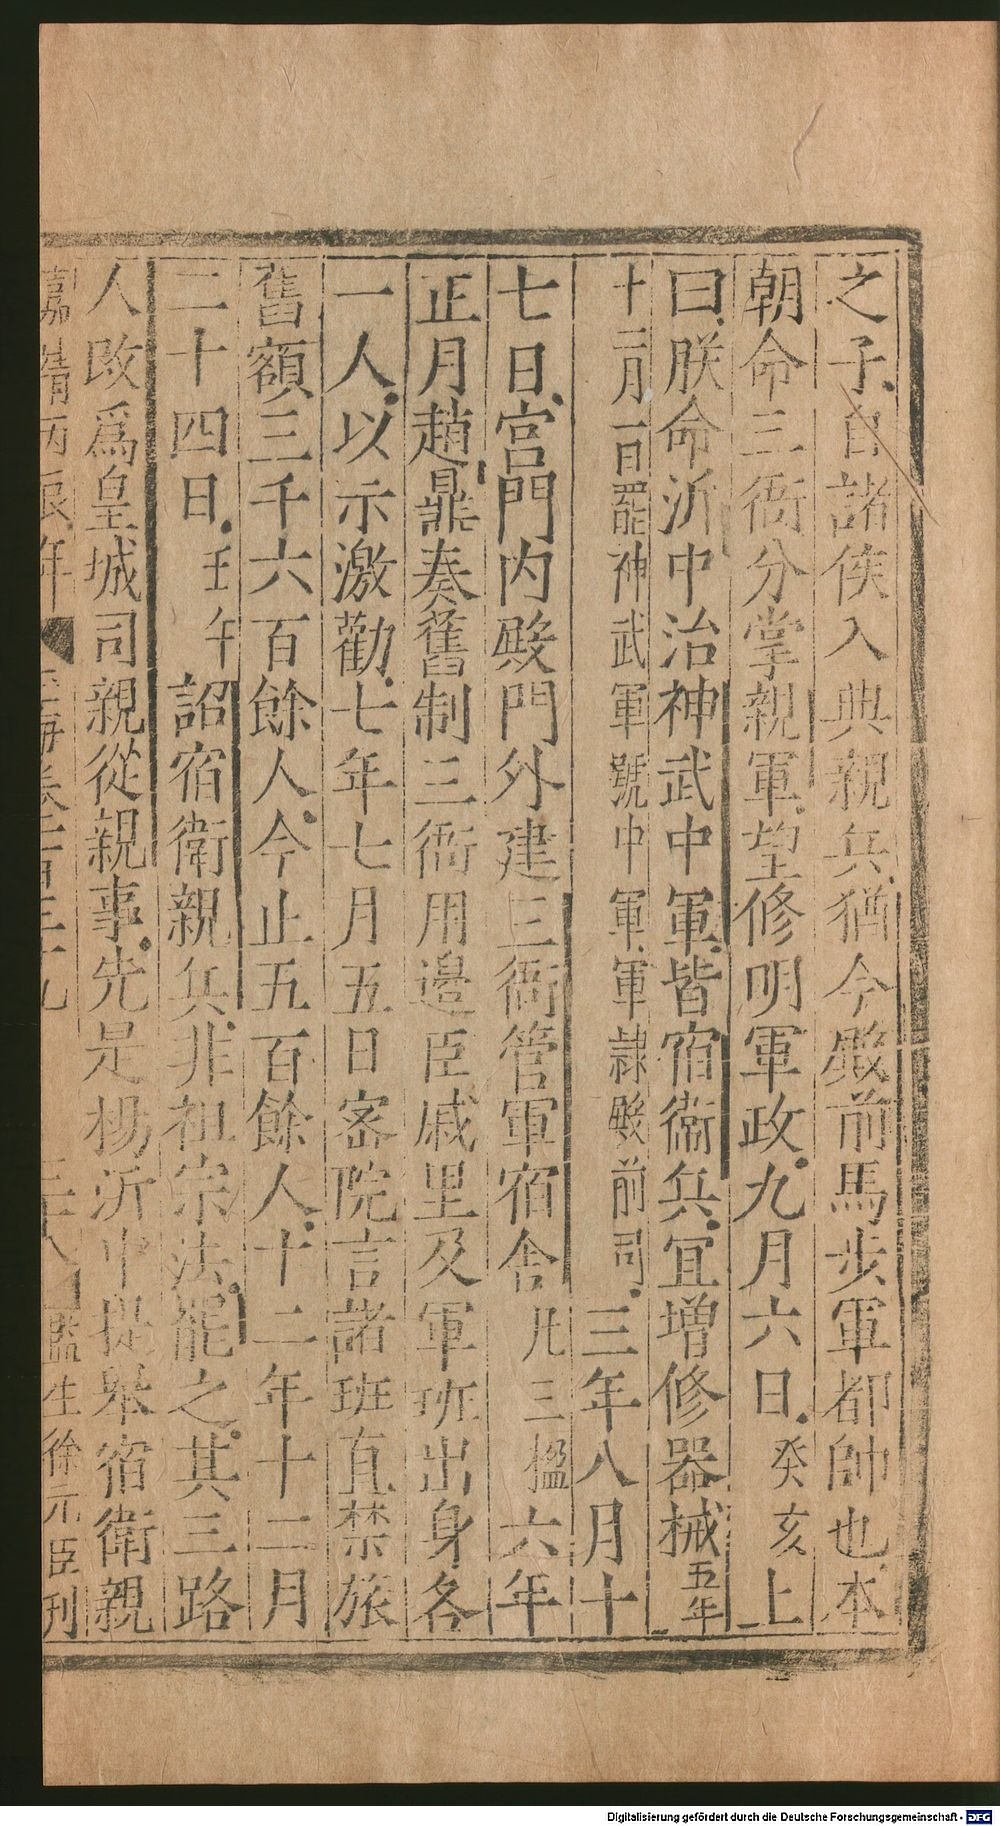 之子自諸侯入典親兵猶今殿前馬步軍都帥也本
朝命三衙分掌親軍望修明軍政九月六日癸亥上
曰朕命沂中治神武中軍皆宿衞兵宜增修器械五年
十二月一日罷神武軍號中軍軍隸殿前司三年八月十
七日宮門内殿門外建三衙管軍宿舍凡三楹六年
正月趙鼎奏舊制三衙用邊臣戚里及軍班出身各
一人以示激勸七年七月五日密院言諸班直禁旅
舊額三千六百餘人今止五百餘人十二年十二月
二十四日壬午詔宿衛親兵非祖宗法罷之其三路
人改爲皇城司親從親事先是楊沂中提舉宿衛親
嘉靖丙辰年 玉海卷一百三十九 三十八 監生徐元臣刊
Digitalisierung gefördert durch die Deutsche Forschungsgemeinschaft - DFG